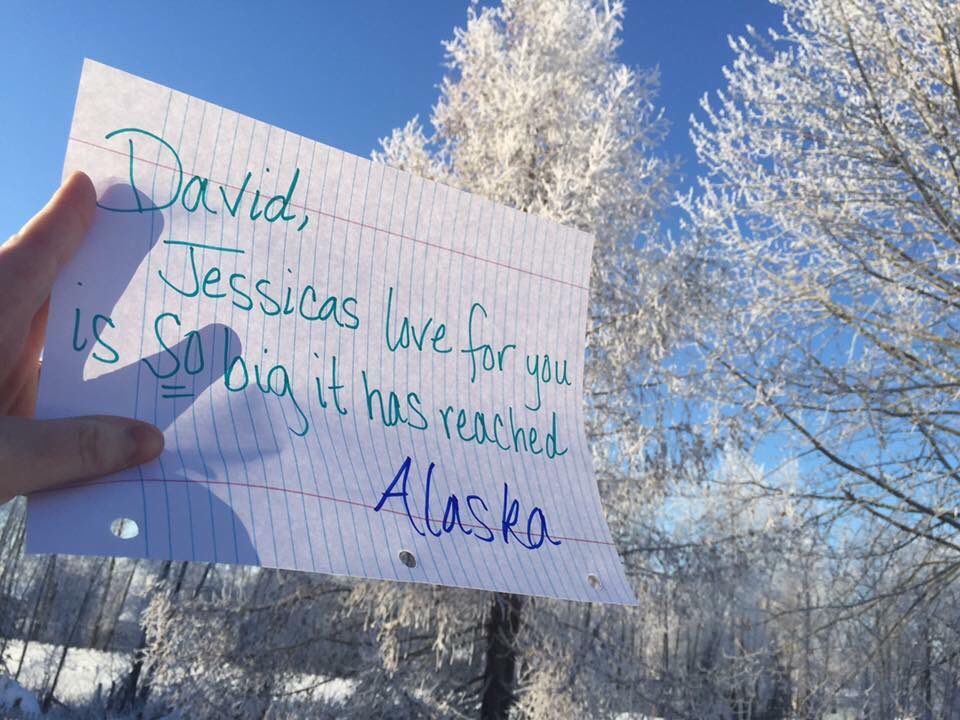 David,
Jessicas love for you
is So big it has reached
Alaska